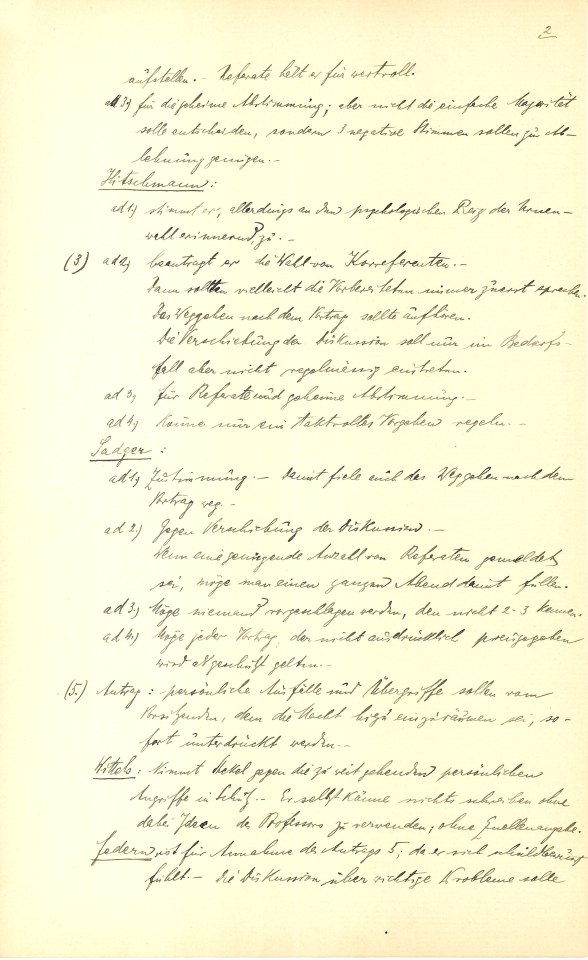 2
aufstellen. – Referate hält er für wertvoll.
ad 3.) für die geheime Abstimmung; aber nicht die einfache Majorität
solle entscheiden, sondern 3 negative Stimmen sollen zu Ab-
lehnung genügen. –
Hitschmann:
ad 1.) stimmt er, allerdings an den psychologischen Reiz der Urnen-
wahl erinnernd, zu. –
(3) ad 2.) beantragt er die Wahl von Korreferenten. –
Dann sollten vielleicht die Vorbereiteten immer zuerst sprechen.
Das Weggehen nach dem Vortrag sollte aufhören.
Die Verschiebung der Diskussion soll nur im Bedarfs-
fall aber nicht regelmässig eintreten.
ad 3.) für Referate und geheime Abstimmung. –
ad 4.) Könne nur ein taktvolles Vorgehen regeln. –
Sadger:
ad 1.) Zustimmung. – Damit fiele auch das Weggehen nach dem
Vortrag weg. –
ad 2.) Gegen Verschiebung der Diskussion. –
Wenn eine genügende Anzahl von Referaten gemeldet
sei, möge man einen ganzen Abend damit füllen.
ad 3.) Möge niemand vorgeschlagen werden, den nicht 2-3 kennen.
ad 4.) Möge jeder Vortrag, der nicht ausdrücklich preisgegeben
wird als geschützt gelten. –
(5.) Antrag: persönliche Ausfälle und Übergriffe sollen vom
Vorsitzenden, dem die Macht hiezu einzuräumen sei, so-
fort unterdrückt werden. –
Wittels: Nimmt Stekel gegen die zu weit gehenden persönlichen
Angriffe in Schutz. – Er selbst könne nichts schreiben ohne
dabei Ideen des Professors zu verwenden; ohne Quellenangabe.
Federn ist für Annahme des Antrags 5; da er sich schuldbewusst
fühlt. – Die Diskussion über wichtige Probleme solle